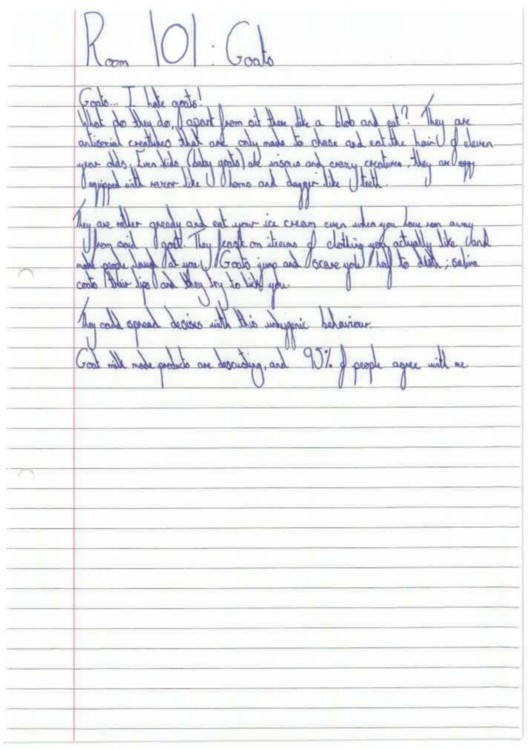 Room 101: Goats
Goats... I hate goats!
What do they do, apart from sit there like a blob and eat? They are
antisocial creatures that are only made to chase and eat the hair of eleven
year olds. Even kids (baby goats) are and crazy creatures, they are
equipped with razor like horns and dagger like teeth.
They are rather greedy and eat your ice cream even when you have ran away
from said goat. They feast on items of clothing you actually like and
make people laugh at you! Goats jump and scare you half to death; saliva
coats their lips and they try to lick you.
They could spread desises with this unhygenic behaviour
Goat milk made products are descusting, and 95% of people agree with me